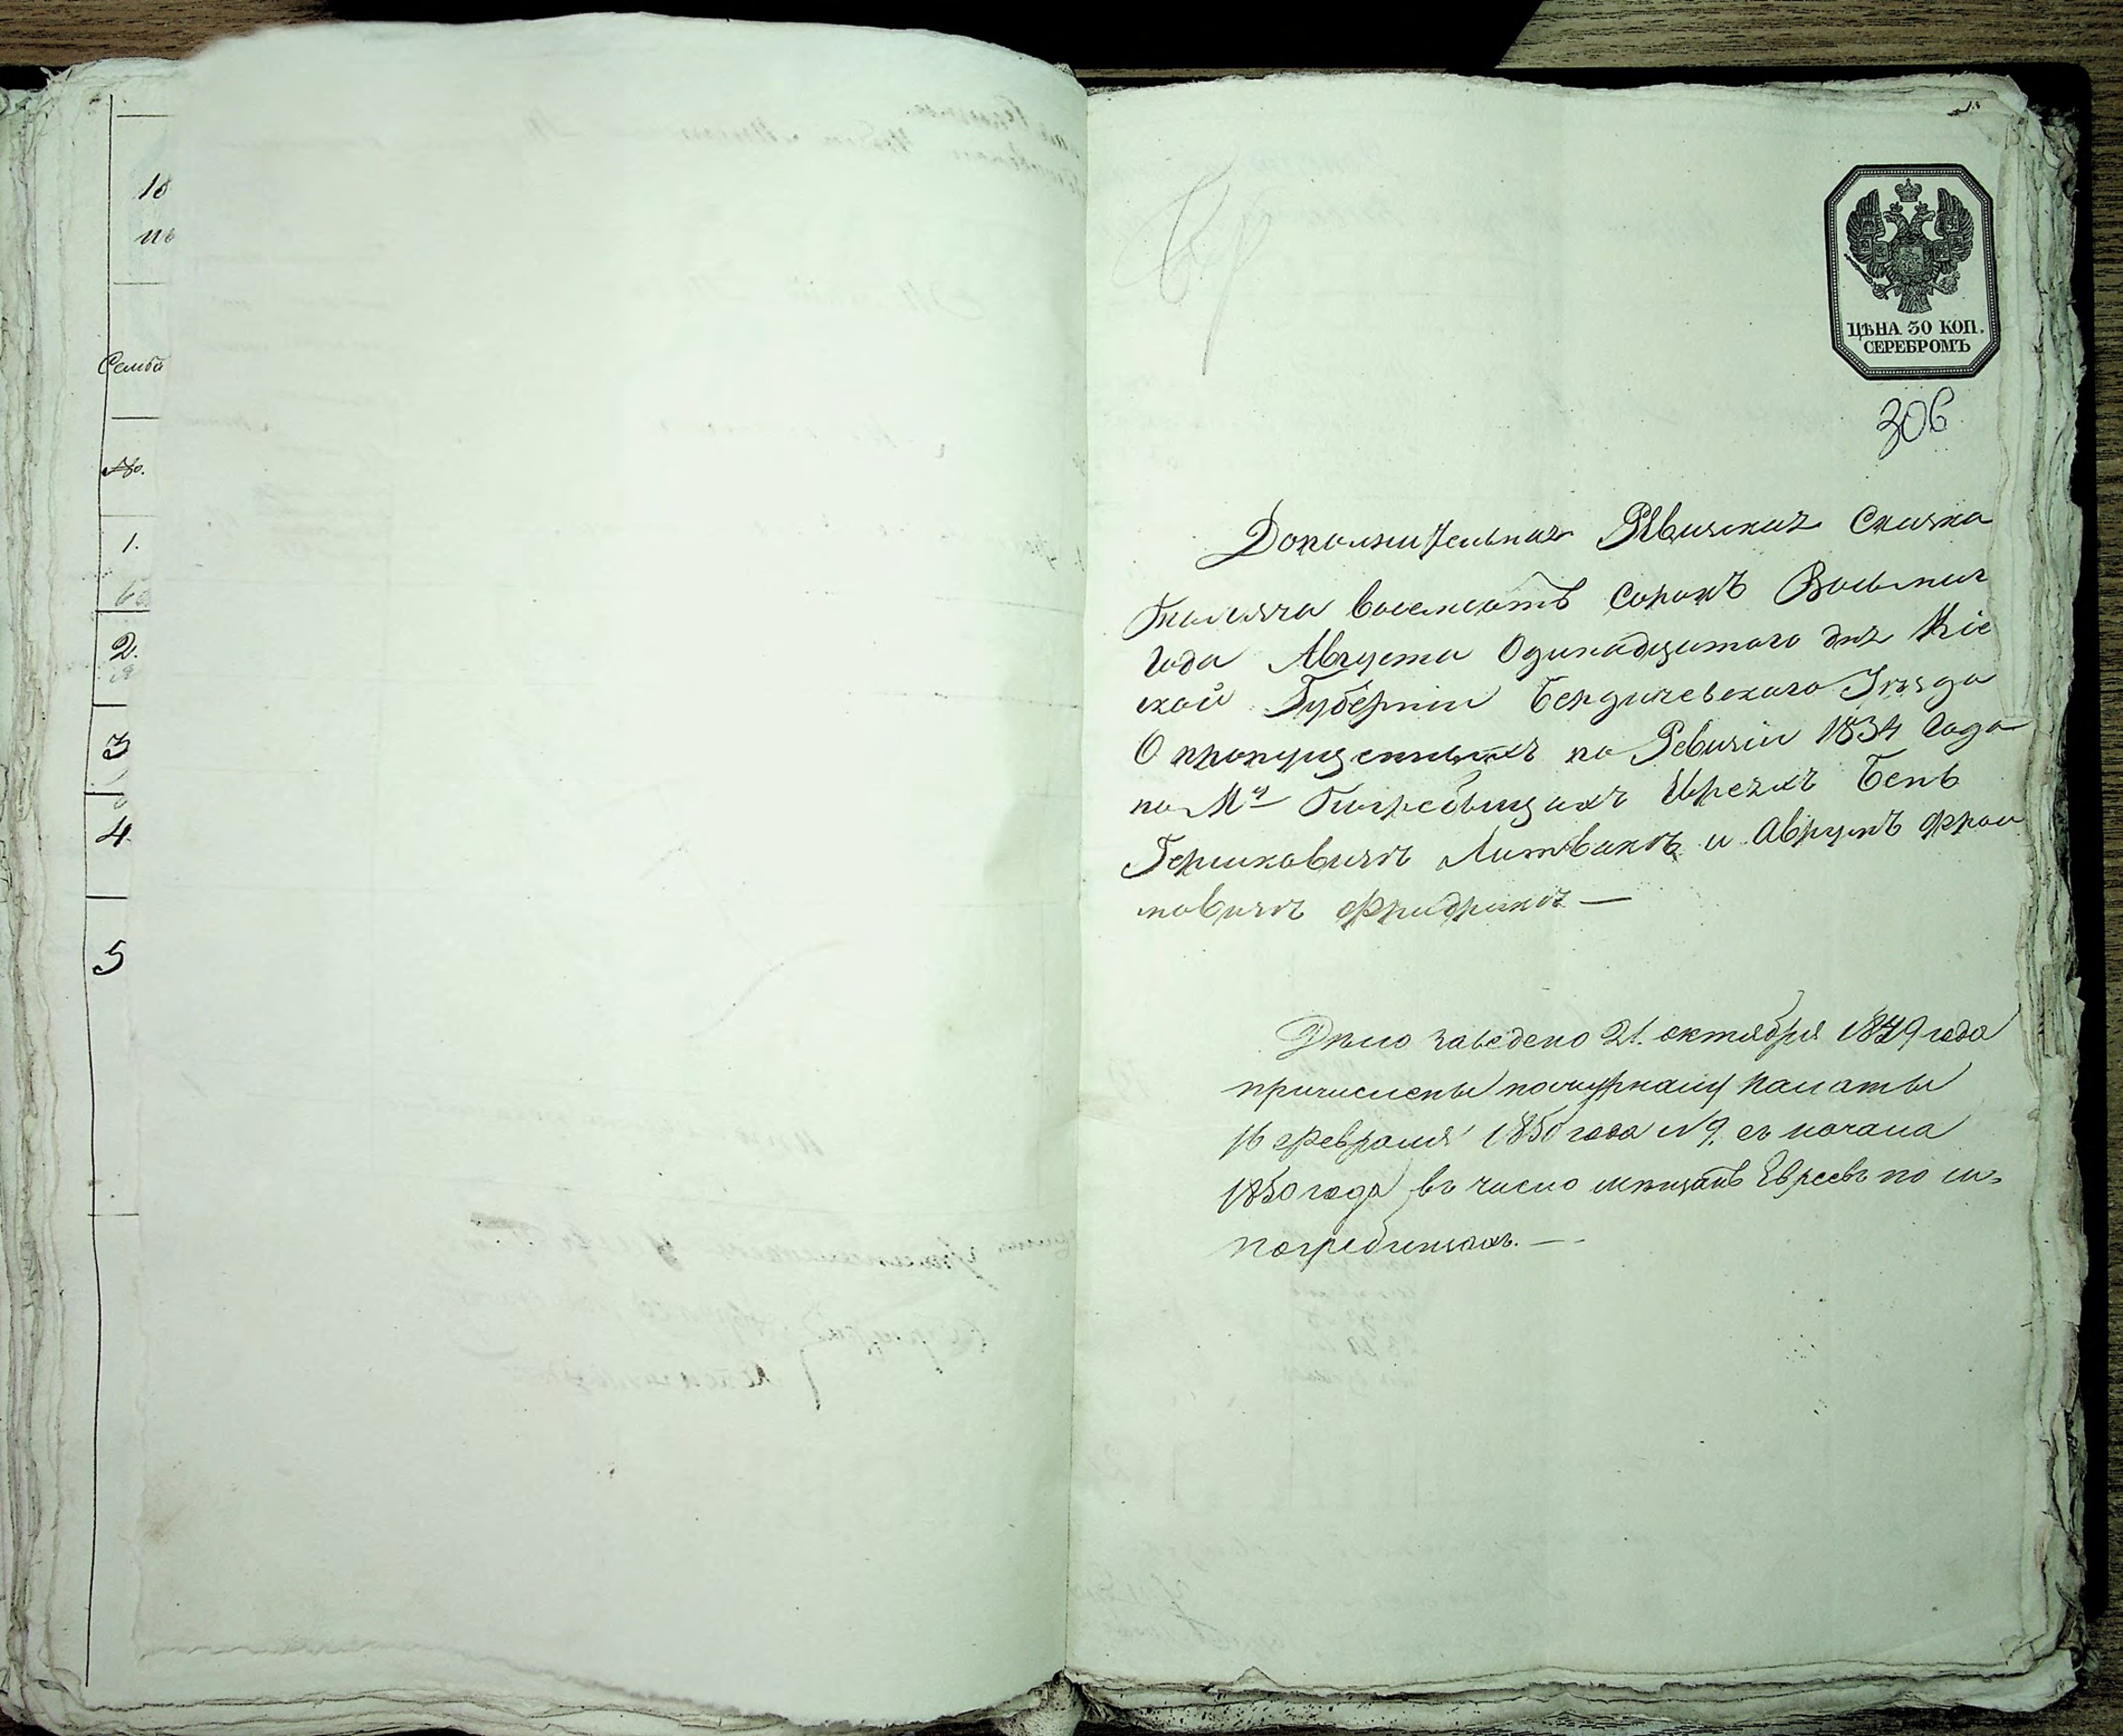 10
Семья
№.
1.
2.
3
4
5
ЦѢНА 30 КОП.
СЕРЕБРОМЪ
306
Дополнительная Ревизская Сказка
Тысяча восемсотъ Сорокъ Восьмаго
Года Августа Одинадцатого дня Кіе
ской Губерніи Бердичевскаго Уѣзда
О пропущенныхъ по Ревизіи 1834 Года
по Мч Погребыщахъ Евреяхъ Бень
Гершковичъ Литвакъ и Аврумъ Фрои
мовичъ Фридрихъ —
Дѣло заведено 21. октября 1849 года
причислены по журналу палаты
16 февраля 1850 года №9. съ начала
1850 года въ число мѣщанъ Евреевъ по м.
Погребищахъ. —